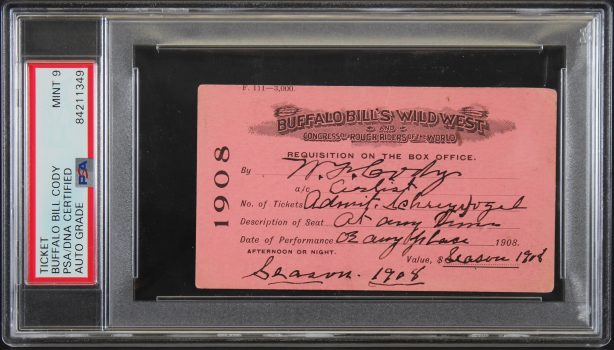 TICKET
BUFFALO BILL CODY
PSA/DNA CERTIFIED
AUTO GRADE
MINT 9
84211349
PSA
F. 111—3,000.
BUFFALO BILL'S WILD WEST
AND
CONGRESS OF ROUGH RIDERS OF THE WORLD
REQUISITION ON THE BOX OFFICE.
1908
By W. F. Cody
a/c
No. of Tickets Admit. Schreyvogel
Description of Seat At any time
Date of Performance Or any place 1908.
AFTERNOON OR NIGHT.
Value, $ Season 1908
Season. 1908